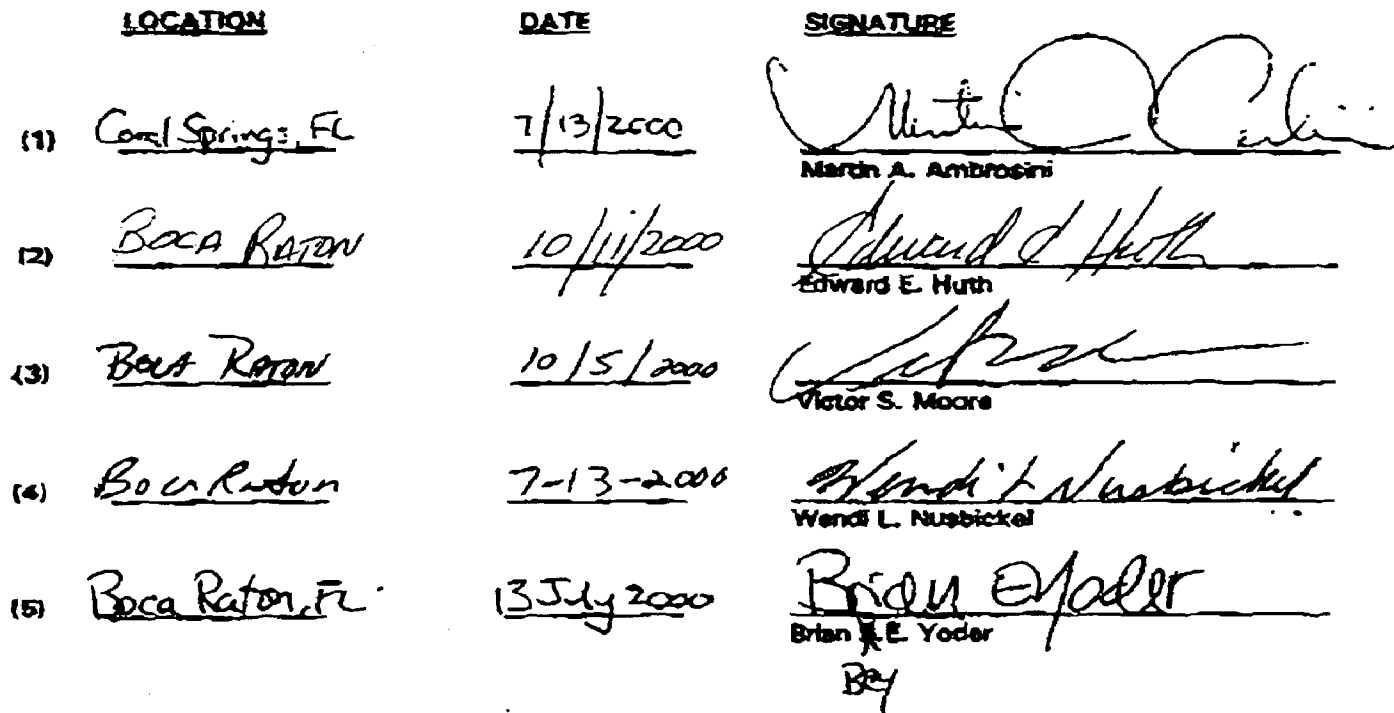 LOCATION DATE SIGNATURE
(1) Coral Springs, FL 7/13/2000
Martin A. Ambrosini
(2) BOCA RATON 10/11/2000 Edward E Huth
Edward E. Huth
(3) BOCA RATON 10/5/2000
Victor S. Moore
(4) Boca Raton 7-13-2000 Wendi L Nusbickel
Wendi L. Nusbickel
(5) Boca Raton, FL 13 July 2000 Brian E Yoder
Brian E. Yoder
BEY